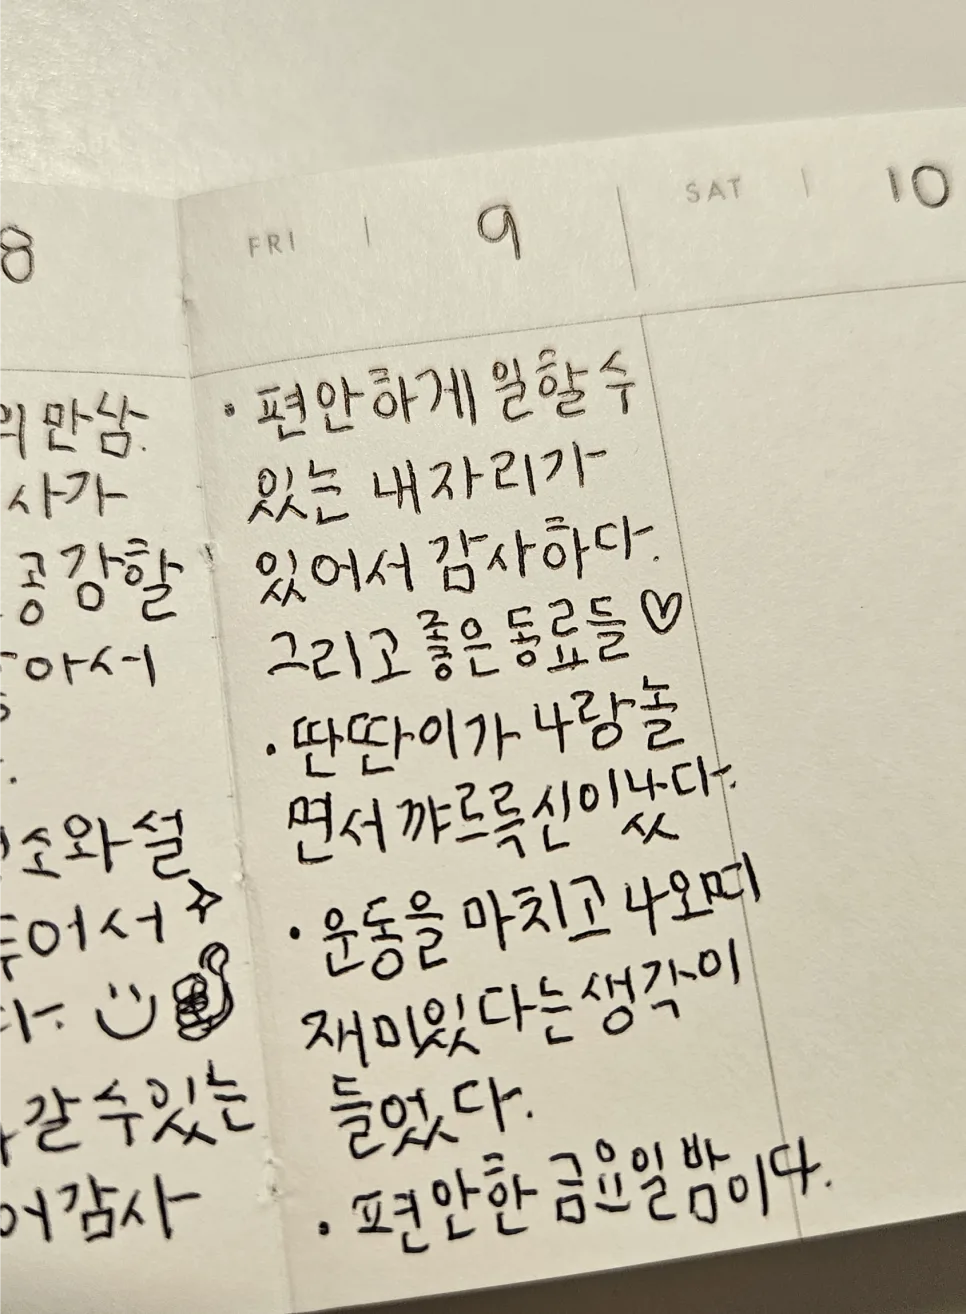 8
의 만삼.
사가
공강할
아서
소와 설
어서
다.
갈 수 있는
어 감사
FRI | 9
· 편안하게 일할 수
있는 내 자리가
있어서 감사하다.
그리고 좋은 동료들♡
· 딴딴이가 나랑 놀
면서 꺄르륵 신이 났다.
· 운동을 마치고 나오며
재미있다는 생각이
들었다.
· 편안한 금요일 밤이다.
SAT | 10